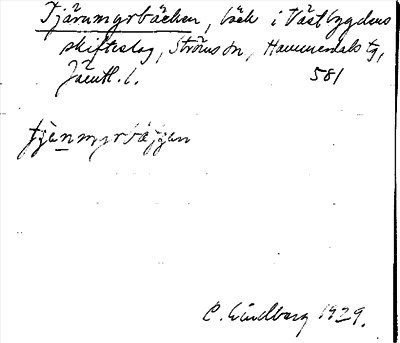 Tjärnmyrbäcken, bäck i Västbygdens
skifteslag, Ströms sn, Hammerdals tg,
Jämtl. l. 581
tjänmyrbäjjen
C. Lindberg 1929.